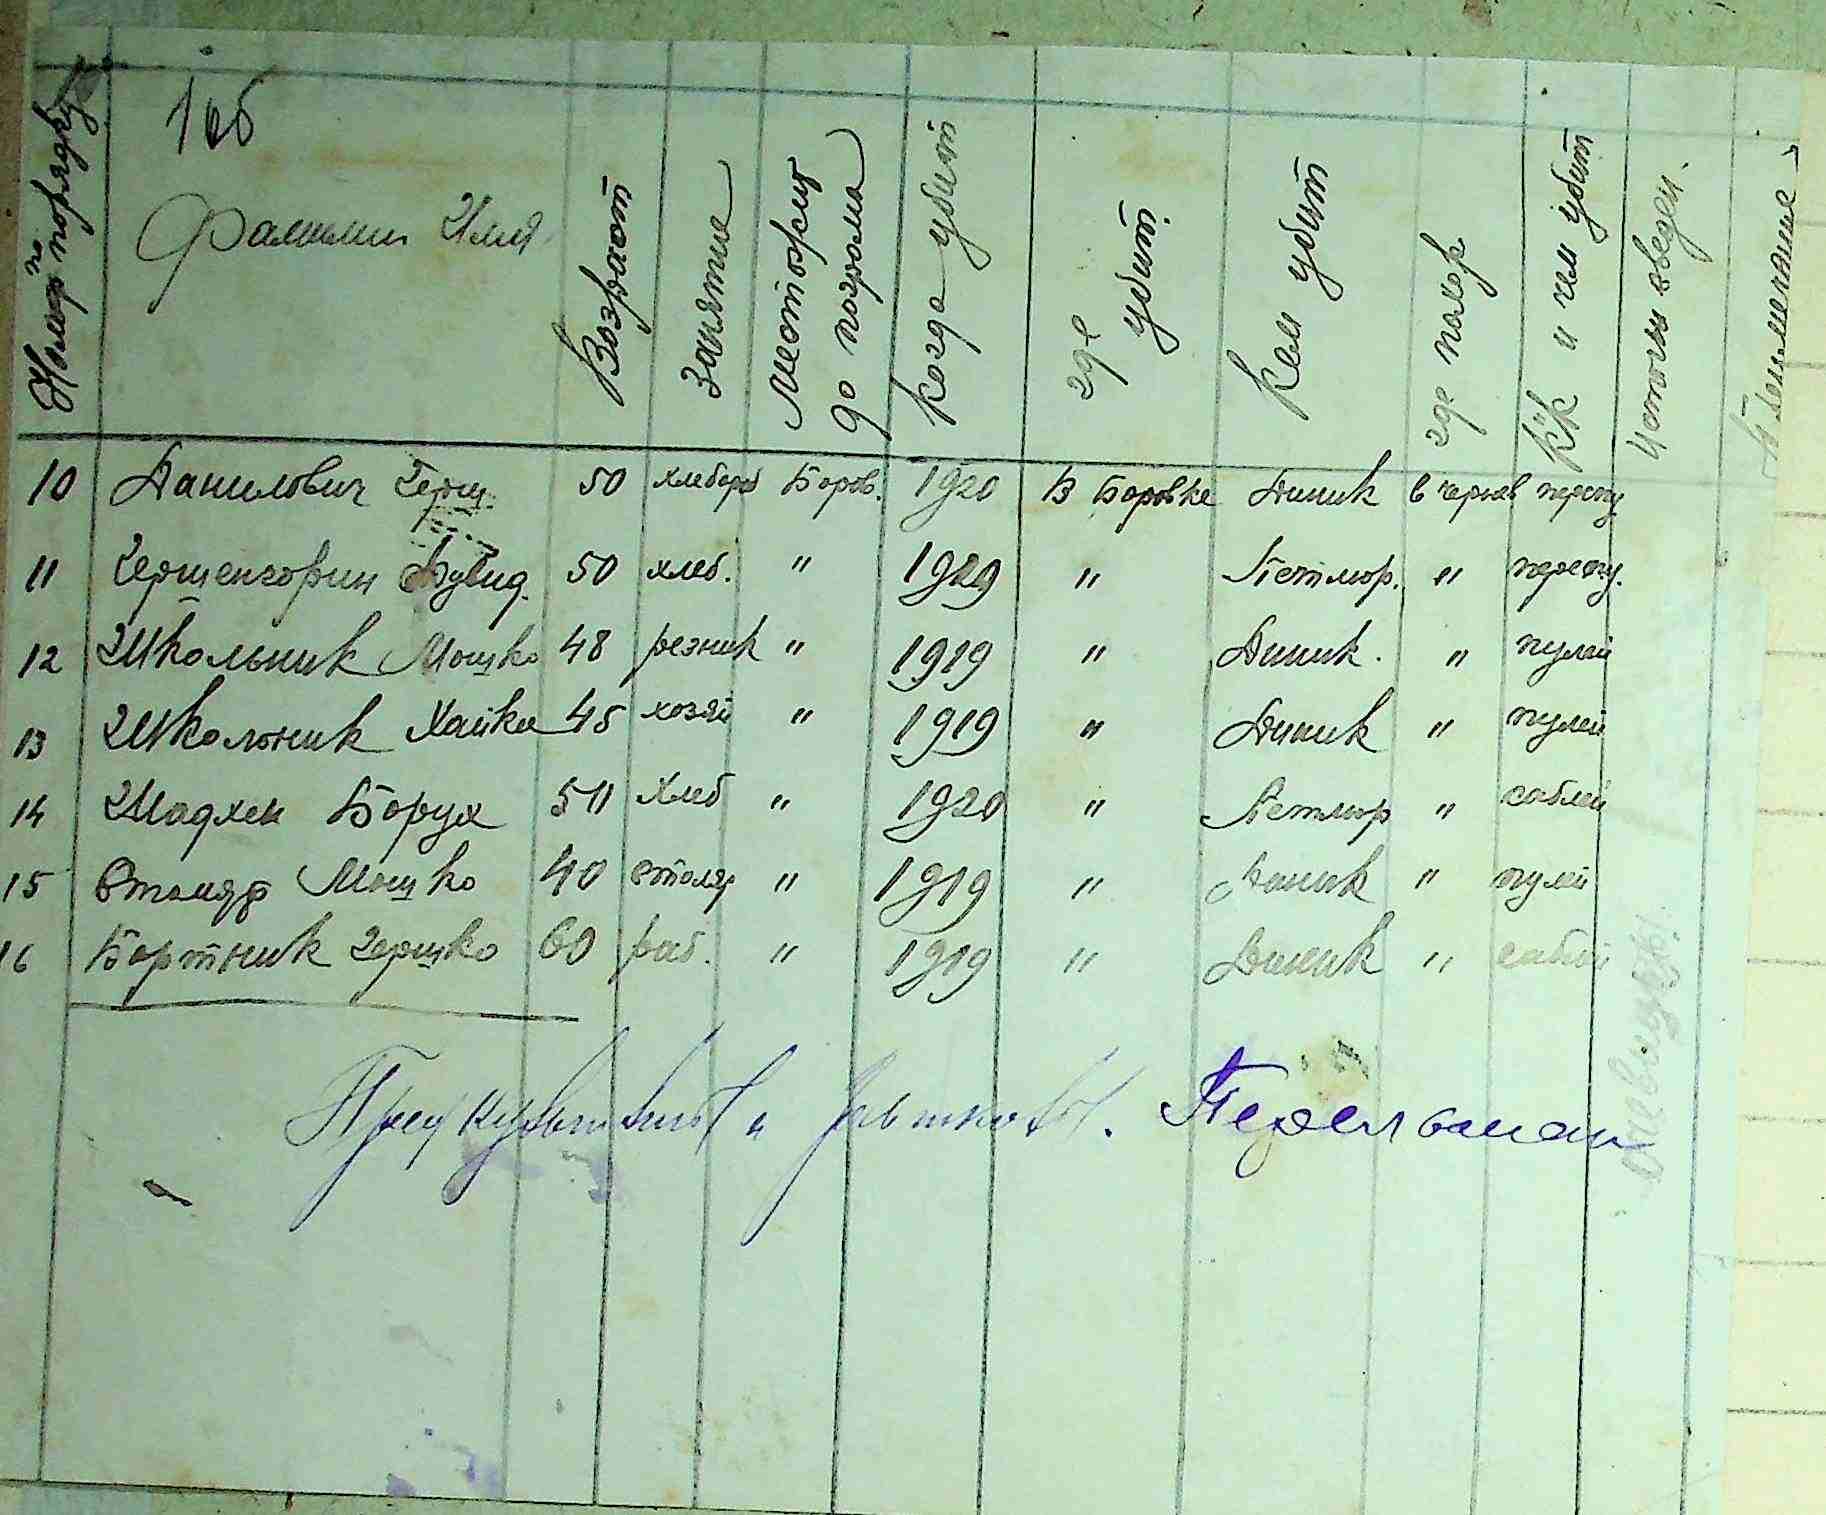 166
Номер по порядку
Фамилии Имя
Возраст
Занятие
Местожит до погрома
Когда убит
где убит.
Кем убит
где похор
Как и чем убит
Источн сведен.
Примечание
10 Данилович Герш. 50 хлебороб Боров. 1920 в Боровке Диник в черкев перепу
11 Гершенгорин Дувид. 50 хлеб. " 1929 " Петлюр. " перепу.
12 Школьник Мошко 48 резник " 1919 " Диник. " пулей
13 Школьник Хайка 45 хозяй " 1919 " Диник " пулей
14 Шадхен Борух 50 Хлеб " 1920 " Петлюр " саблей
15 Столяр Мошко 40 столяр " 1919 " Диник " пулей
16 Бортник Гершко 60 раб. " 1919 " Диник " саблей